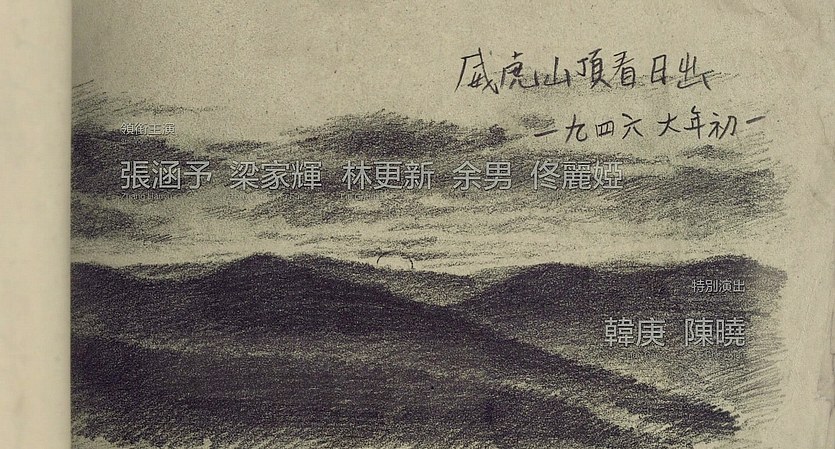 威虎山頂看日出
一九四六 大年初一
領銜主演
張涵予 梁家輝 林更新 余男 佟麗婭
特別演出
韓庚 陳曉